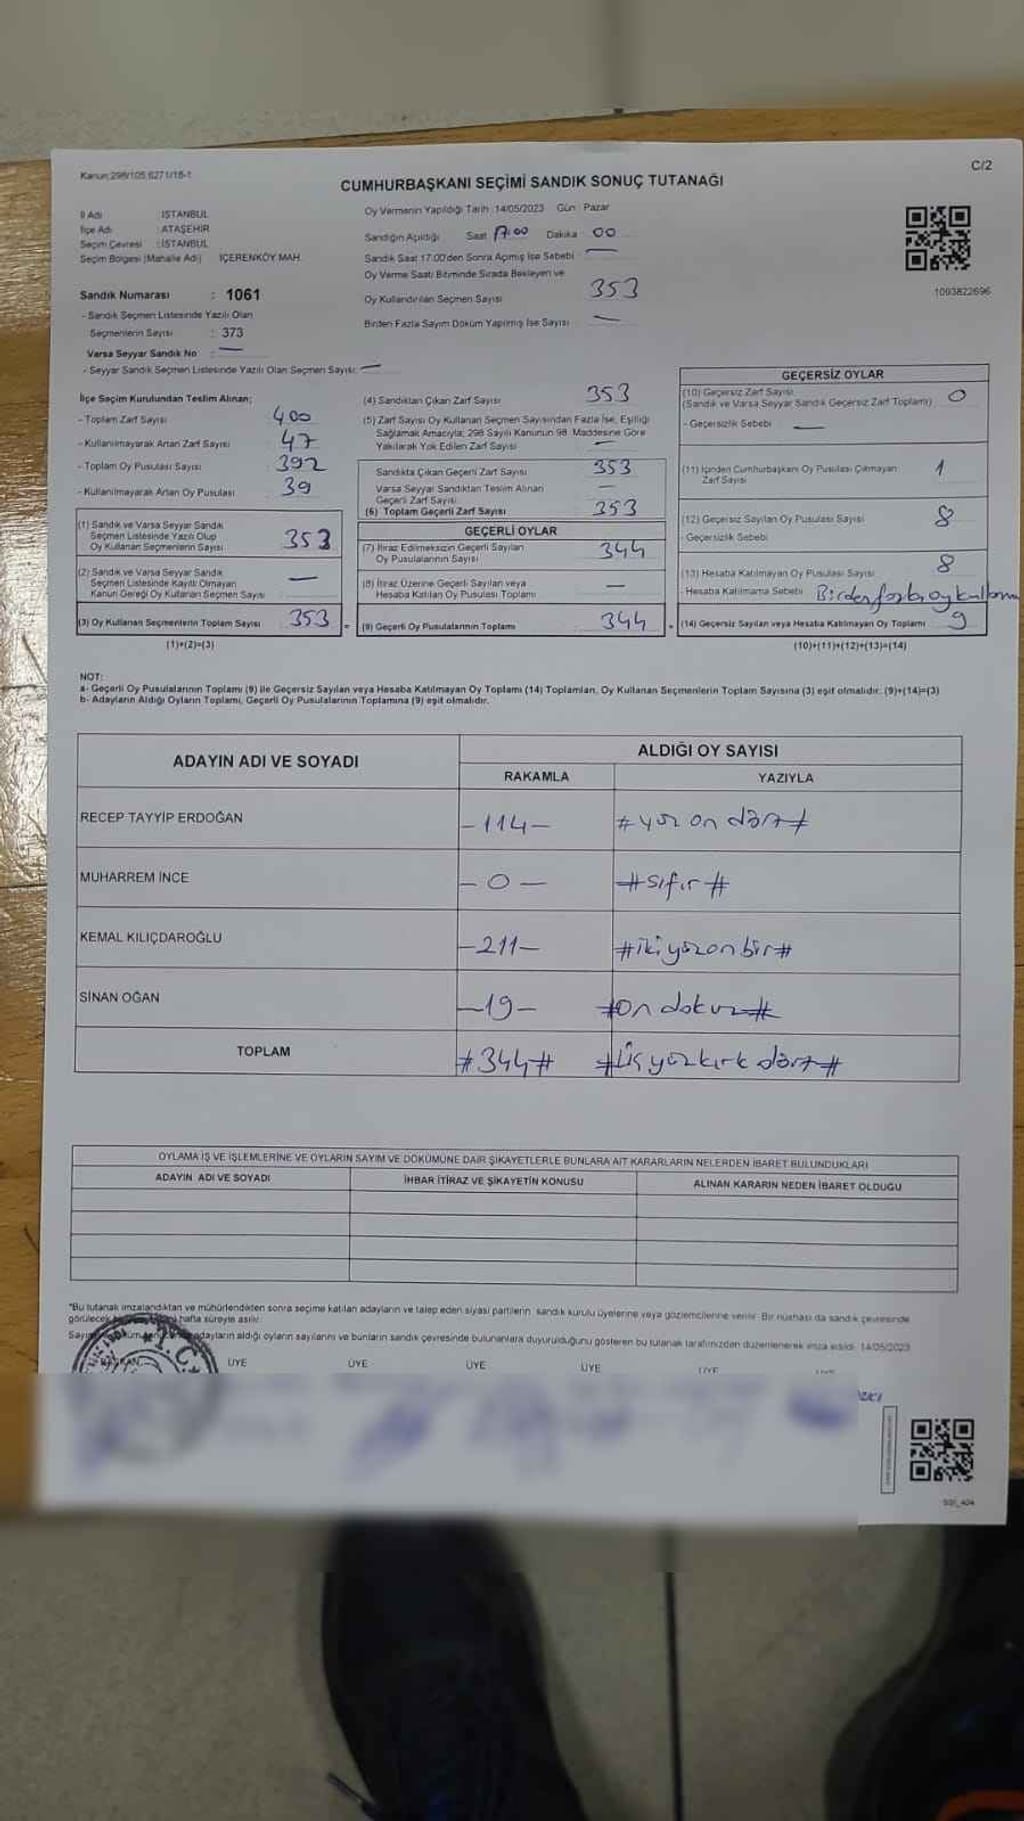 Kanun:298/105,6271/18-1
C/2
CUMHURBAŞKANI SEÇİMİ SANDIK SONUÇ TUTANAĞI
İl Adı : İSTANBUL
İlçe Adı : ATAŞEHİR
Seçim Çevresi : İSTANBUL
Seçim Bölgesi (Mahalle Adı) İÇERENKÖY MAH.
Sandık Numarası : 1061
- Sandık Seçmen Listesinde Yazılı Olan
Seçmenlerin Sayısı : 373
Varsa Seyyar Sandık No : —
- Seyyar Sandık Seçmen Listesinde Yazılı Olan Seçmen Sayısı: —
Oy Vermenin Yapıldığı Tarih :14/05/2023 Gün : Pazar
Sandığın Açıldığı Saat 17:00 Dakika 00
Sandık Saat 17:00'den Sonra Açılmış İse Sebebi —
Oy Verme Saati Bitiminde Sırada Bekleyen ve
Oy Kullandırılan Seçmen Sayısı 353
Birden Fazla Sayım Döküm Yapılmış İse Sayısı —
1093822696
İlçe Seçim Kurulundan Teslim Alınan;
- Toplam Zarf Sayısı 400
- Kullanılmayarak Artan Zarf Sayısı 47
- Toplam Oy Pusulası Sayısı 392
- Kullanılmayarak Artan Oy Pusulası 39
(1) Sandık ve Varsa Seyyar Sandık
Seçmen Listesinde Yazılı Olup
Oy Kullanan Seçmenlerin Sayısı 353
(2) Sandık ve Varsa Seyyar Sandık
Seçmen Listesinde Kayıtlı Olmayan
Kanun Gereği Oy Kullanan Seçmen Sayısı —
(3) Oy Kullanan Seçmenlerin Toplam Sayısı 353 =
(1)+(2)=(3)
(4) Sandıktan Çıkan Zarf Sayısı 353
(5) Zarf Sayısı Oy Kullanan Seçmen Sayısından Fazla İse, Eşitliği
Sağlamak Amacıyla; 298 Sayılı Kanunun 98. Maddesine Göre
Yakılarak Yok Edilen Zarf Sayısı —
Sandıkta Çıkan Geçerli Zarf Sayısı 353
Varsa Seyyar Sandıktan Teslim Alınan
Geçerli Zarf Sayısı —
(6) Toplam Geçerli Zarf Sayısı 353
GEÇERLİ OYLAR
(7) İtiraz Edilmeksizin Geçerli Sayılan
Oy Pusulalarının Sayısı 344
(8) İtiraz Üzerine Geçerli Sayılan veya
Hesaba Katılan Oy Pusulası Toplamı —
(9) Geçerli Oy Pusulalarının Toplamı 344
GEÇERSİZ OYLAR
(10) Geçersiz Zarf Sayısı
(Sandık ve Varsa Seyyar Sandık Geçersiz Zarf Toplamı) 0
- Geçersizlik Sebebi —
(11) İçinden Cumhurbaşkanı Oy Pusulası Çıkmayan
Zarf Sayısı 1
(12) Geçersiz Sayılan Oy Pusulası Sayısı 8
- Geçersizlik Sebebi
(13) Hesaba Katılmayan Oy Pusulası Sayısı 8
- Hesaba Katılmama Sebebi Birden fazla oy kullanma
(14) Geçersiz Sayılan veya Hesaba Katılmayan Oy Toplamı 9
(10)+(11)+(12)+(13)=(14)
NOT:
a- Geçerli Oy Pusulalarının Toplamı (9) ile Geçersiz Sayılan veya Hesaba Katılmayan Oy Toplamı (14) Toplamları, Oy Kullanan Seçmenlerin Toplam Sayısına (3) eşit olmalıdır. (9)+(14)=(3)
b- Adayların Aldığı Oyların Toplamı, Geçerli Oy Pusulalarının Toplamına (9) eşit olmalıdır.
ADAYIN ADI VE SOYADI
ALDIĞI OY SAYISI
RAKAMLA YAZIYLA
RECEP TAYYİP ERDOĞAN -114- #yüz on dört#
MUHARREM İNCE -0- #sıfır#
KEMAL KILIÇDAROĞLU -211- #iki yüz on bir#
SİNAN OĞAN -19- #on dokuz#
TOPLAM #344# #üç yüz kırk dört#
OYLAMA İŞ VE İŞLEMLERİNE VE OYLARIN SAYIM VE DÖKÜMÜNE DAİR ŞİKAYETLERLE BUNLARA AİT KARARLARIN NELERDEN İBARET BULUNDUKLARI
ADAYIN ADI VE SOYADI İHBAR İTİRAZ VE ŞİKAYETİN KONUSU ALINAN KARARIN NEDEN İBARET OLDUĞU
*Bu tutanak imzalandıktan ve mühürlendikten sonra seçime katılan adayların ve talep eden siyasi partilerin, sandık kurulu üyelerine veya gözlemcilerine verilir. Bir nüshası da sandık çevresinde
görülecek hafta süreyle asılır.
adayların aldığı oyların sayılarını ve bunların sandık çevresinde bulunanlara duyurulduğunu gösteren bu tutanak tarafımızdan düzenlenerek imza edildi. 14/05/2023
T.C.
BAŞKAN ÜYE ÜYE ÜYE ÜYE ÜYE